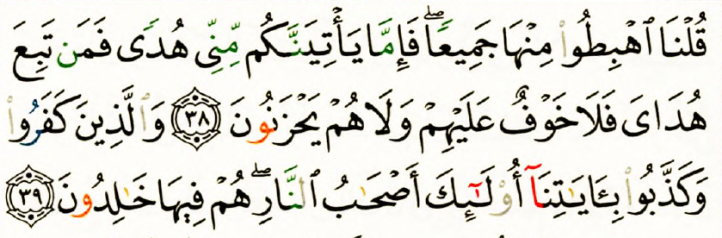 قُلْنَا ٱهْبِطُوا۟ مِنْهَا جَمِيعًۭا ۖ فَإِمَّا يَأْتِيَنَّكُم مِّنِّى هُدًۭى فَمَن تَبِعَ
هُدَاىَ فَلَا خَوْفٌ عَلَيْهِمْ وَلَا هُمْ يَحْزَنُونَ ﴿٣٨﴾ وَٱلَّذِينَ كَفَرُوا۟
وَكَذَّبُوا۟ بِـَٔايَـٰتِنَآ أُو۟لَـٰٓئِكَ أَصْحَـٰبُ ٱلنَّارِ ۖ هُمْ فِيهَا خَـٰلِدُونَ ﴿٣٩﴾